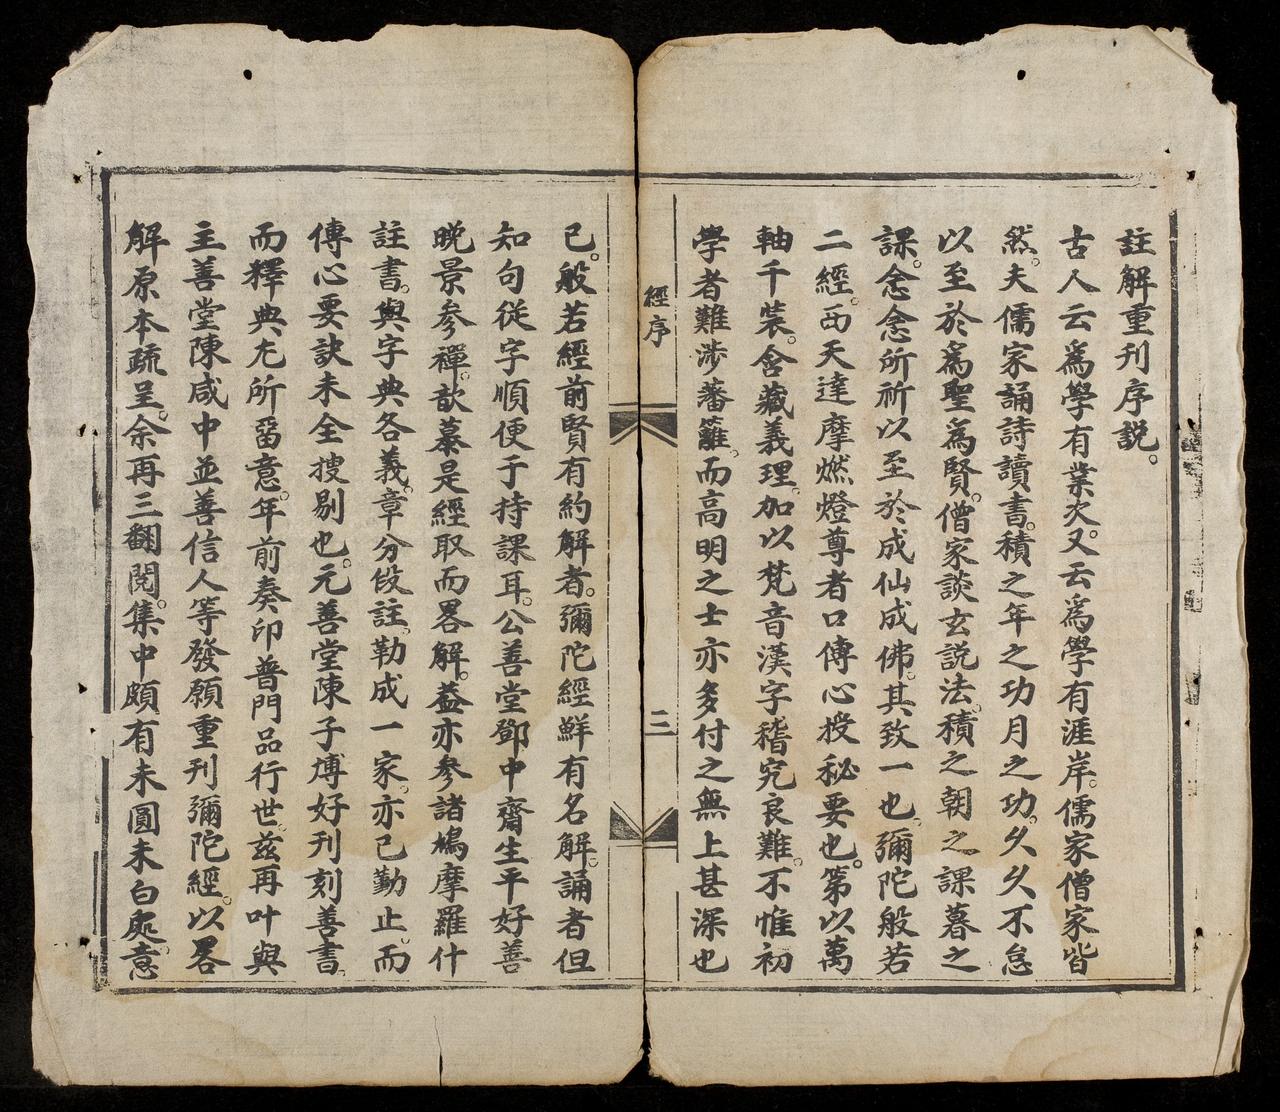 註解重刊序説。
古人云爲學有業次。又云爲學有涯岸。儒家僧家皆
然。夫儒家誦詩讀書。積之年之功月之功。久久不怠
以至於爲聖爲賢。僧家談玄説法。積之朝之課暮之
課。念念所祈以至於成仙成佛。其致一也。彌陀般若
二經。西天達摩燃燈尊者口傳心授秘要也。第以萬
軸千裝。含藏義理。加以梵音漢字稽究良難。不惟初
學者難涉藩籬。而高明之士亦多付之無上甚深也
經序
三
已。般若經前賢有約解者。彌陀經鮮有名解。誦者但
知句從字順便于持課耳。公善堂鄧中齋生平好善
晚景參禪。歆慕是經取而畧解。益亦參諸鳩摩羅什
註書。與字典各義。章分段註。勒成一家。亦已勤止。而
傳心要訣未全搜剔也。元善堂陳子博好刊刻善書。
而釋典尤所畱意。年前奏印普門品行世。茲再叶與
主善堂陳咸中並善信人等發願重刊彌陀經。以畧
解原本疏呈。余再三翻閱。集中頗有未圓未白處。意